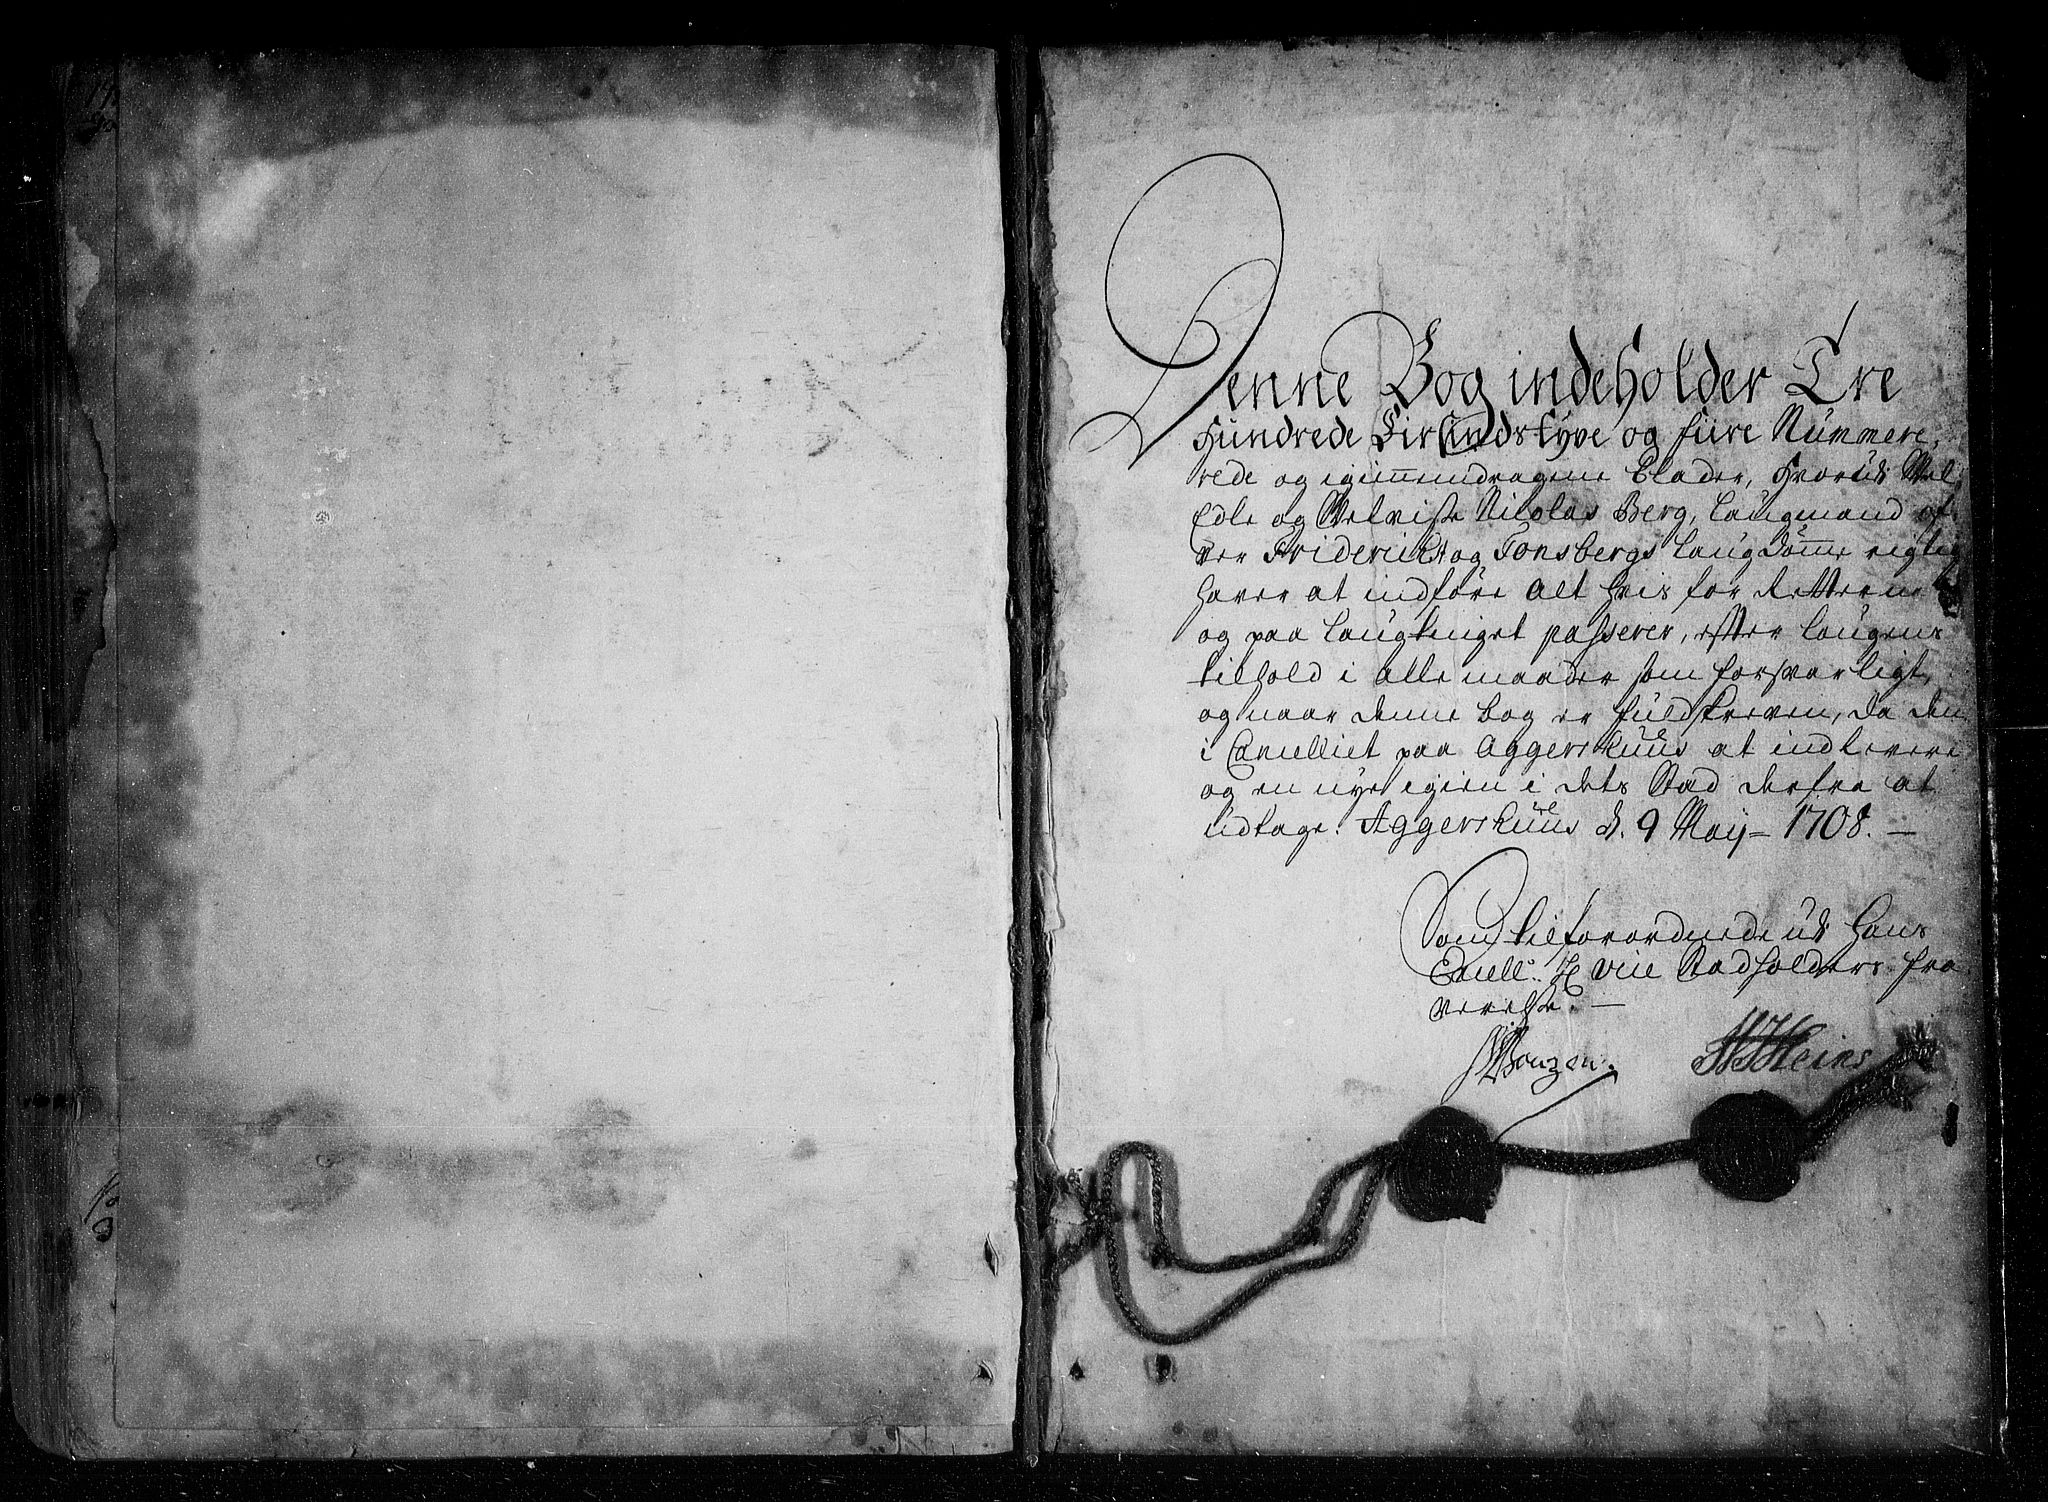 Denne Bog indeholder Tre
Hundrede Firsindstyve og fiire Nummere,
rede og igiennemdragene Blader, Hvorudi Wel
Edle og Welvise Nicolas Berg, Laugmand of,
ver Friderichs og Tonsbergs Laugdømme rigtig
haver at indføre alt hvis for Retterne
og paa Laugtinget passerer, efter Laugens
tilhold i alle maader som forsvarligt,
og naar denne bog er fuldskreven, da den
i Cancelliet paa Aggershuus at indlevere
og en nye igien i dets Stad derfra at
udtage. Aggershuus d. 9 Maij 1708.
Som tilforordnede udi Hans
Excell: H Vice Stadholders fra
værelse.
Bonzen. HJHeins